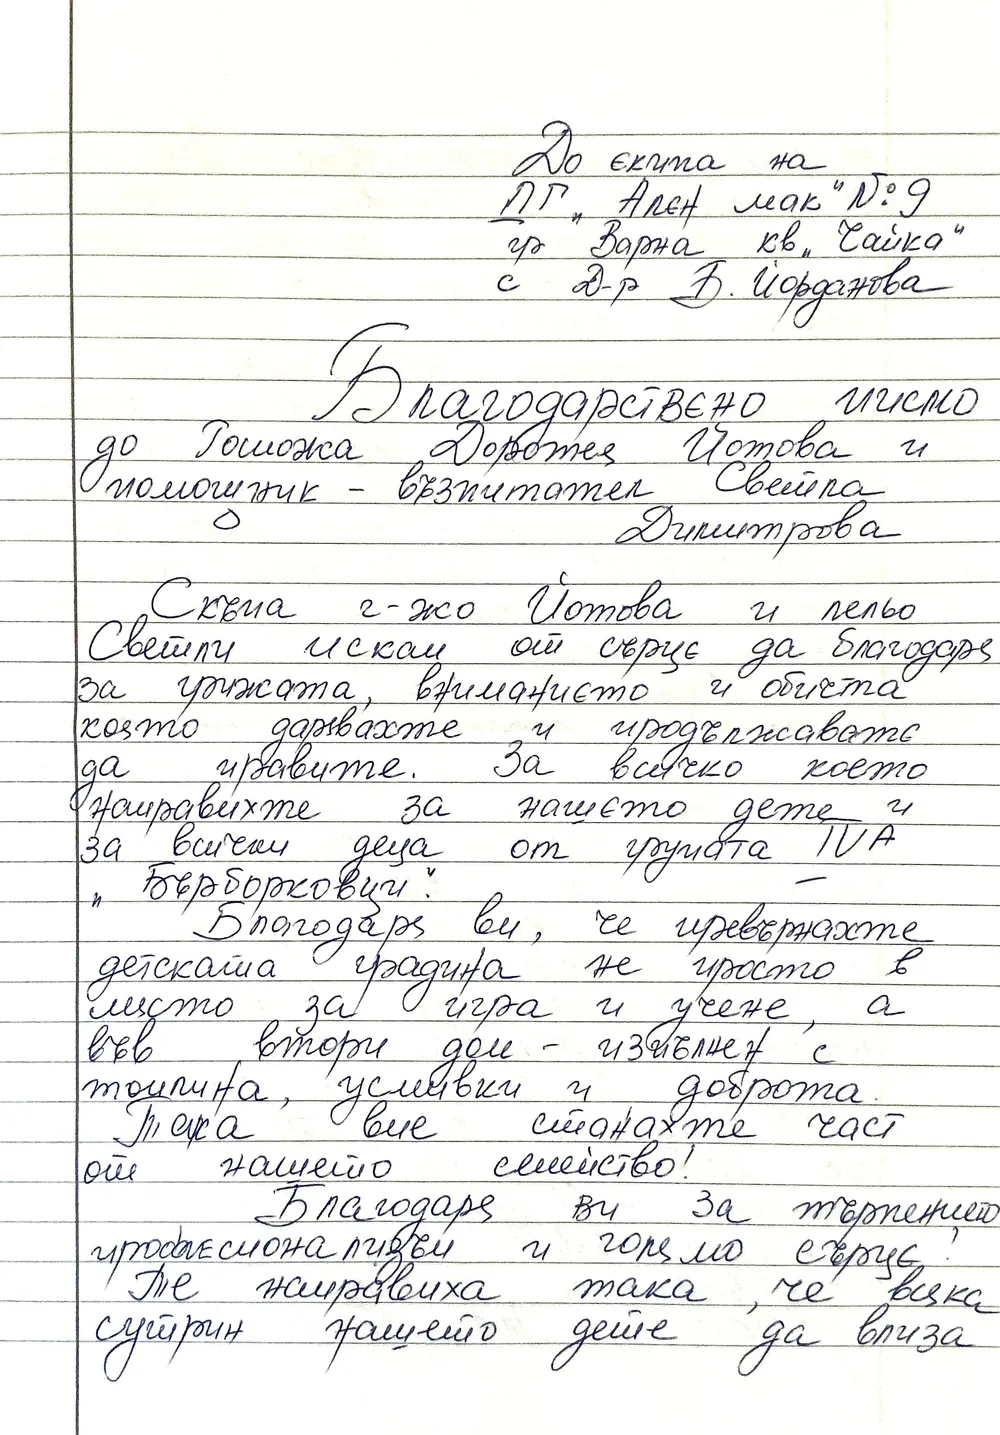 До екипа на
ДГ „Ален мак" №9
гр Варна кв „Чайка"
с Д-р Б. Йорданова
Благодарствено писмо
до Гошожа Доротея Йотова и
помощник - възпитател Светла
Димитрова
Скъпа г-жо Йотова и лельо
Светли искам от сърце да благодаря
за грижата, вниманието и обичта
която дарявахте и продължавате
да правите. За всичко което
направихте за нашето дете и
за всички деца от групата IVA
„Бърборковци".
Благодаря ви, че превърнахте
детската градина не просто в
място за игра и учене, а
във втори дом - изпълнен с
топлина, усмивки и доброта.
Така вие станахте част
от нашето семейство!
Благодаря ви за търпението,
професионализъм и голямо сърце!
Те направиха така, че всяка
сутрин нашето дете да влиза